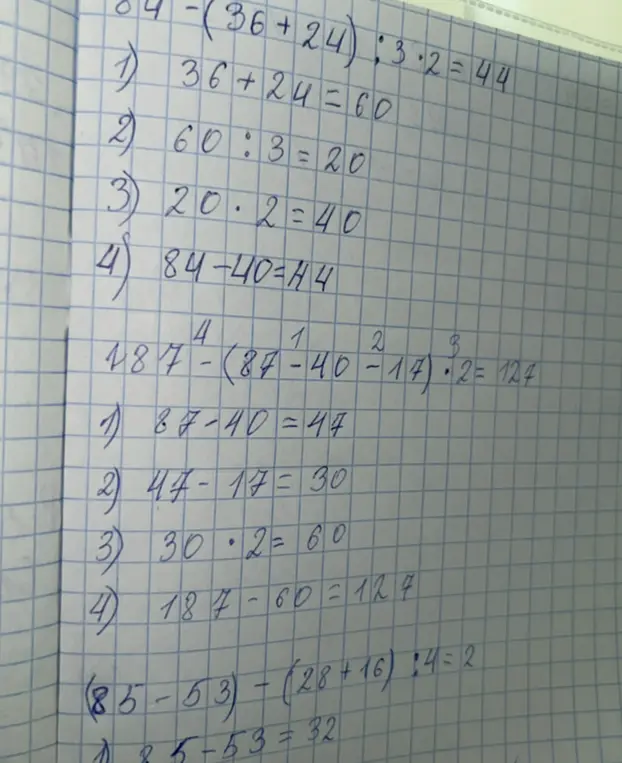 84 - (36 + 24) : 3 · 2 = 44
1) 36 + 24 = 60
2) 60 : 3 = 20
3) 20 · 2 = 40
4) 84 - 40 = 44
4 1 2 3
187 - (87 - 40 - 17) · 2 = 127
1) 87 - 40 = 47
2) 47 - 17 = 30
3) 30 · 2 = 60
4) 187 - 60 = 127
(85 - 53) - (28 + 16) : 4 = 2
1) 85 - 53 = 32